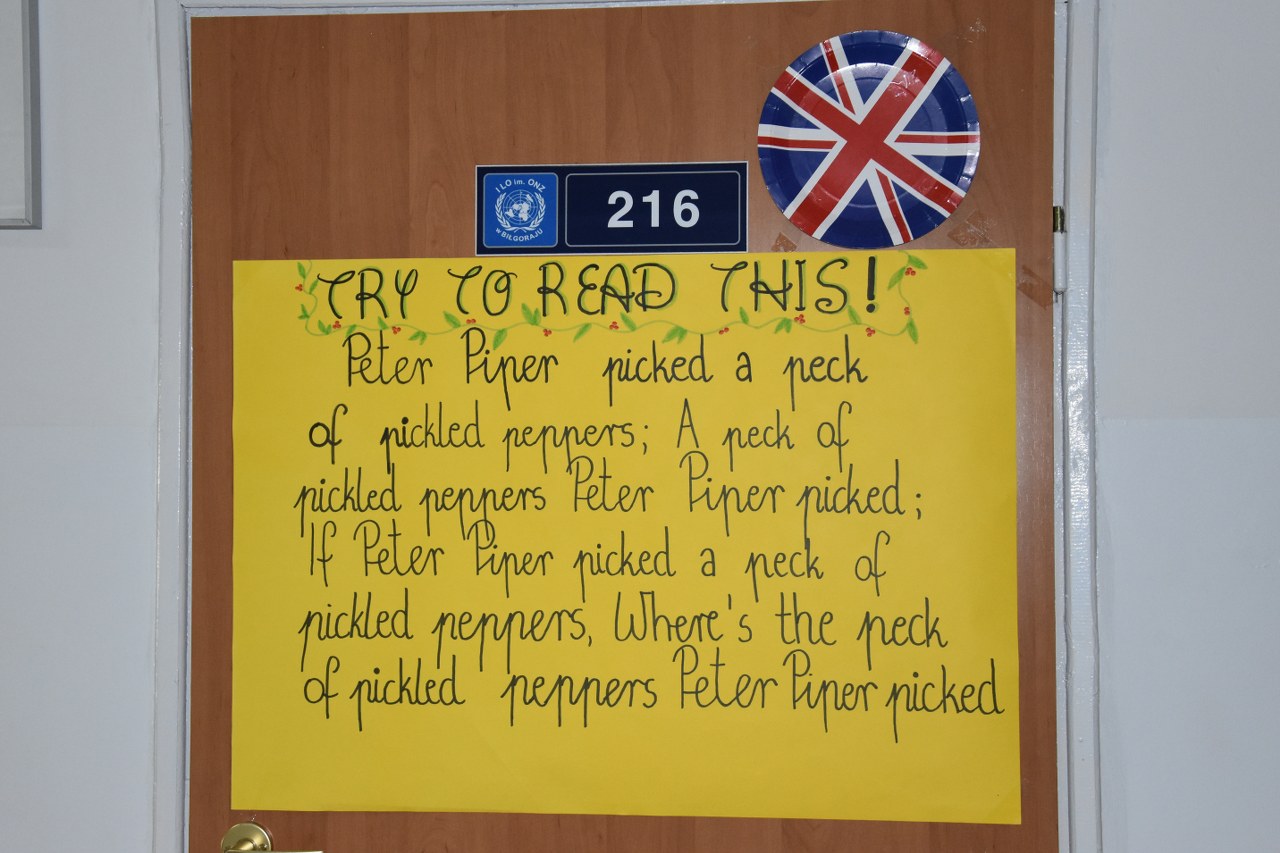 I LO im. ONZ
w BIŁGORAJU
216
TRY TO READ THIS!
Peter Piper picked a peck
of pickled peppers; A peck of
pickled peppers Peter Piper picked;
If Peter Piper picked a peck of
pickled peppers, Where's the peck
of pickled peppers Peter Piper picked